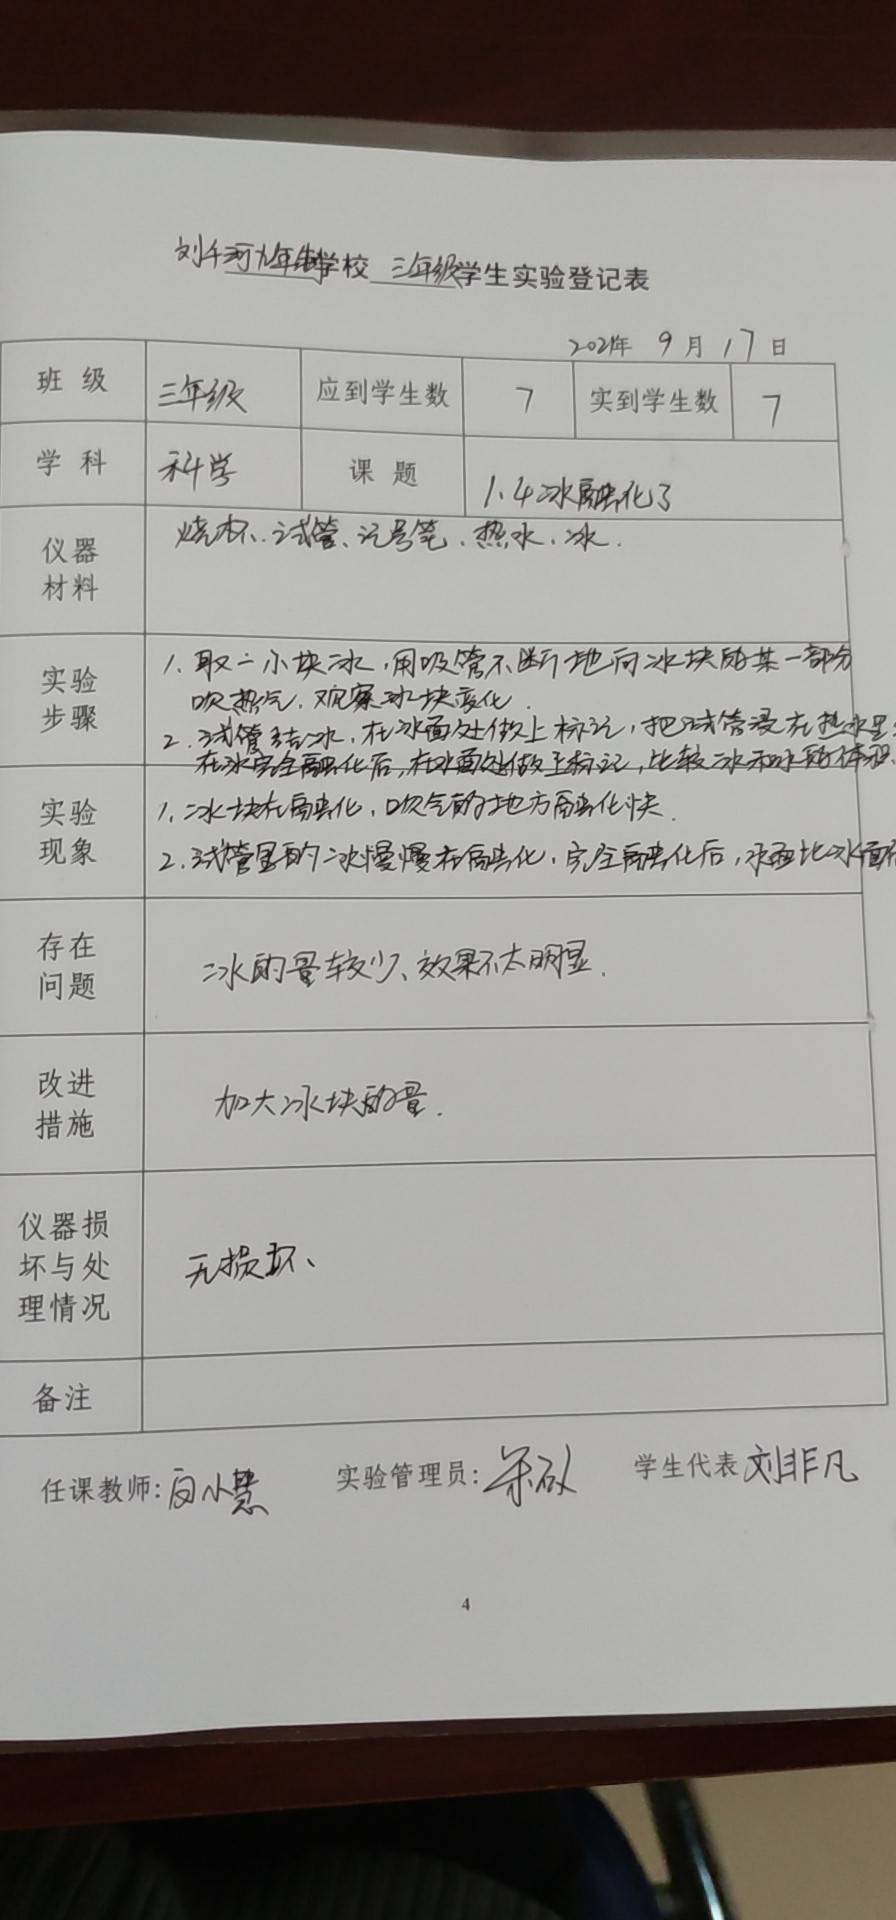 刘千河九年制学校 三年级学生实验登记表
2021年 9月17日
班级 三年级 应到学生数 7 实到学生数 7
学科 科学 课题 1.4冰融化了
仪器材料 烧杯、试管、记号笔、热水、冰.
实验步骤 1. 取一小块冰,用吸管不断地向冰块的某一部分
吹热气,观察冰块变化.
2. 试管结冰,在冰面处做上标记,把试管浸在热水里
在冰完全融化后,在水面处做上标记,比较冰和水的体积.
实验现象 1. 冰块在融化,吹气的地方融化快.
2. 试管里的冰慢慢在融化,完全融化后,水面比冰面
存在问题 冰的量较少、效果不太明显.
改进措施 加大冰块的量.
仪器损坏与处理情况 无损坏、
备注
任课教师:白小慧 实验管理员: 学生代表 刘非凡
4